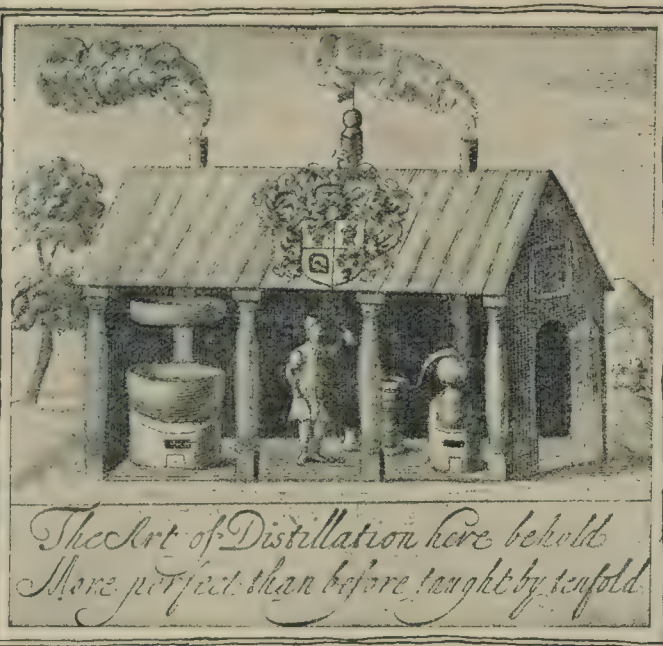 The Art of Distillation here behold
More perfect than before taught by tenfold